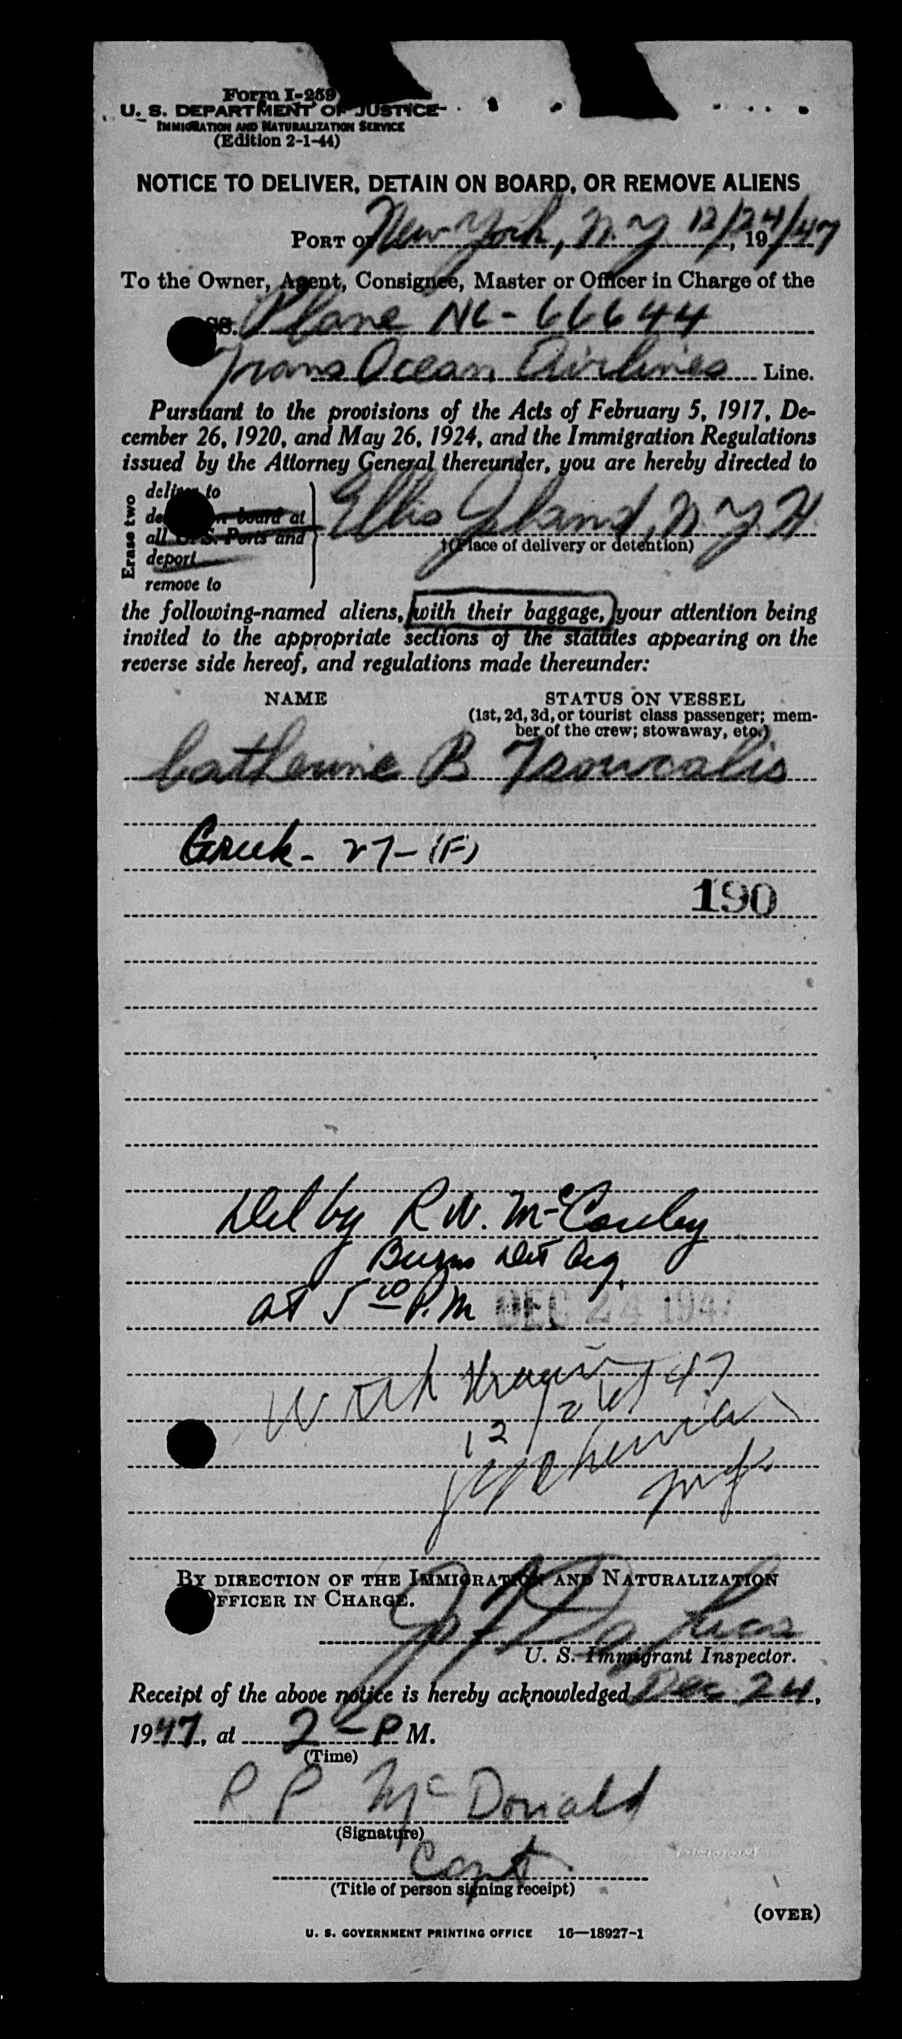 Form I-259
U. S. DEPARTMENT OF JUSTICE
IMMIGRATION AND NATURALIZATION SERVICE
(Edition 2-1-44)
NOTICE TO DELIVER, DETAIN ON BOARD, OR REMOVE ALIENS
PORT OF New York, N.Y. 12/24/, 1947
To the Owner, Agent, Consignee, Master or Officer in Charge of the
SS. Plane NC-66644
Trans Ocean Airlines Line.
Pursuant to the provisions of the Acts of February 5, 1917, De-
cember 26, 1920, and May 26, 1924, and the Immigration Regulations
issued by the Attorney General thereunder, you are hereby directed to
Erase two
deliver to
on board at
all U.S. Ports and
deport
remove to
Ellis Island, N.Y.H
†(Place of delivery or detention)
the following-named aliens, with their baggage, your attention being
invited to the appropriate sections of the statutes appearing on the
reverse side hereof, and regulations made thereunder:
NAME STATUS ON VESSEL
(1st, 2d, 3d, or tourist class passenger; mem-
ber of the crew; stowaway, etc.)
Catherine B Tsoucalis
Greek - 27 - (F)
190
Del by R W. McCauley
Burns Det Acy.
at 5 10 P.M DEC 24 1947
12/26/47
BY DIRECTION OF THE IMMIGRATION AND NATURALIZATION
OFFICER IN CHARGE.
U. S. Immigrant Inspector.
Receipt of the above notice is hereby acknowledged Dec 24,
1947, at 2 - P M.
(Time)
R P McDonald
(Signature)
Capt.
(Title of person signing receipt)
(OVER)
U. S. GOVERNMENT PRINTING OFFICE 16—18927-1